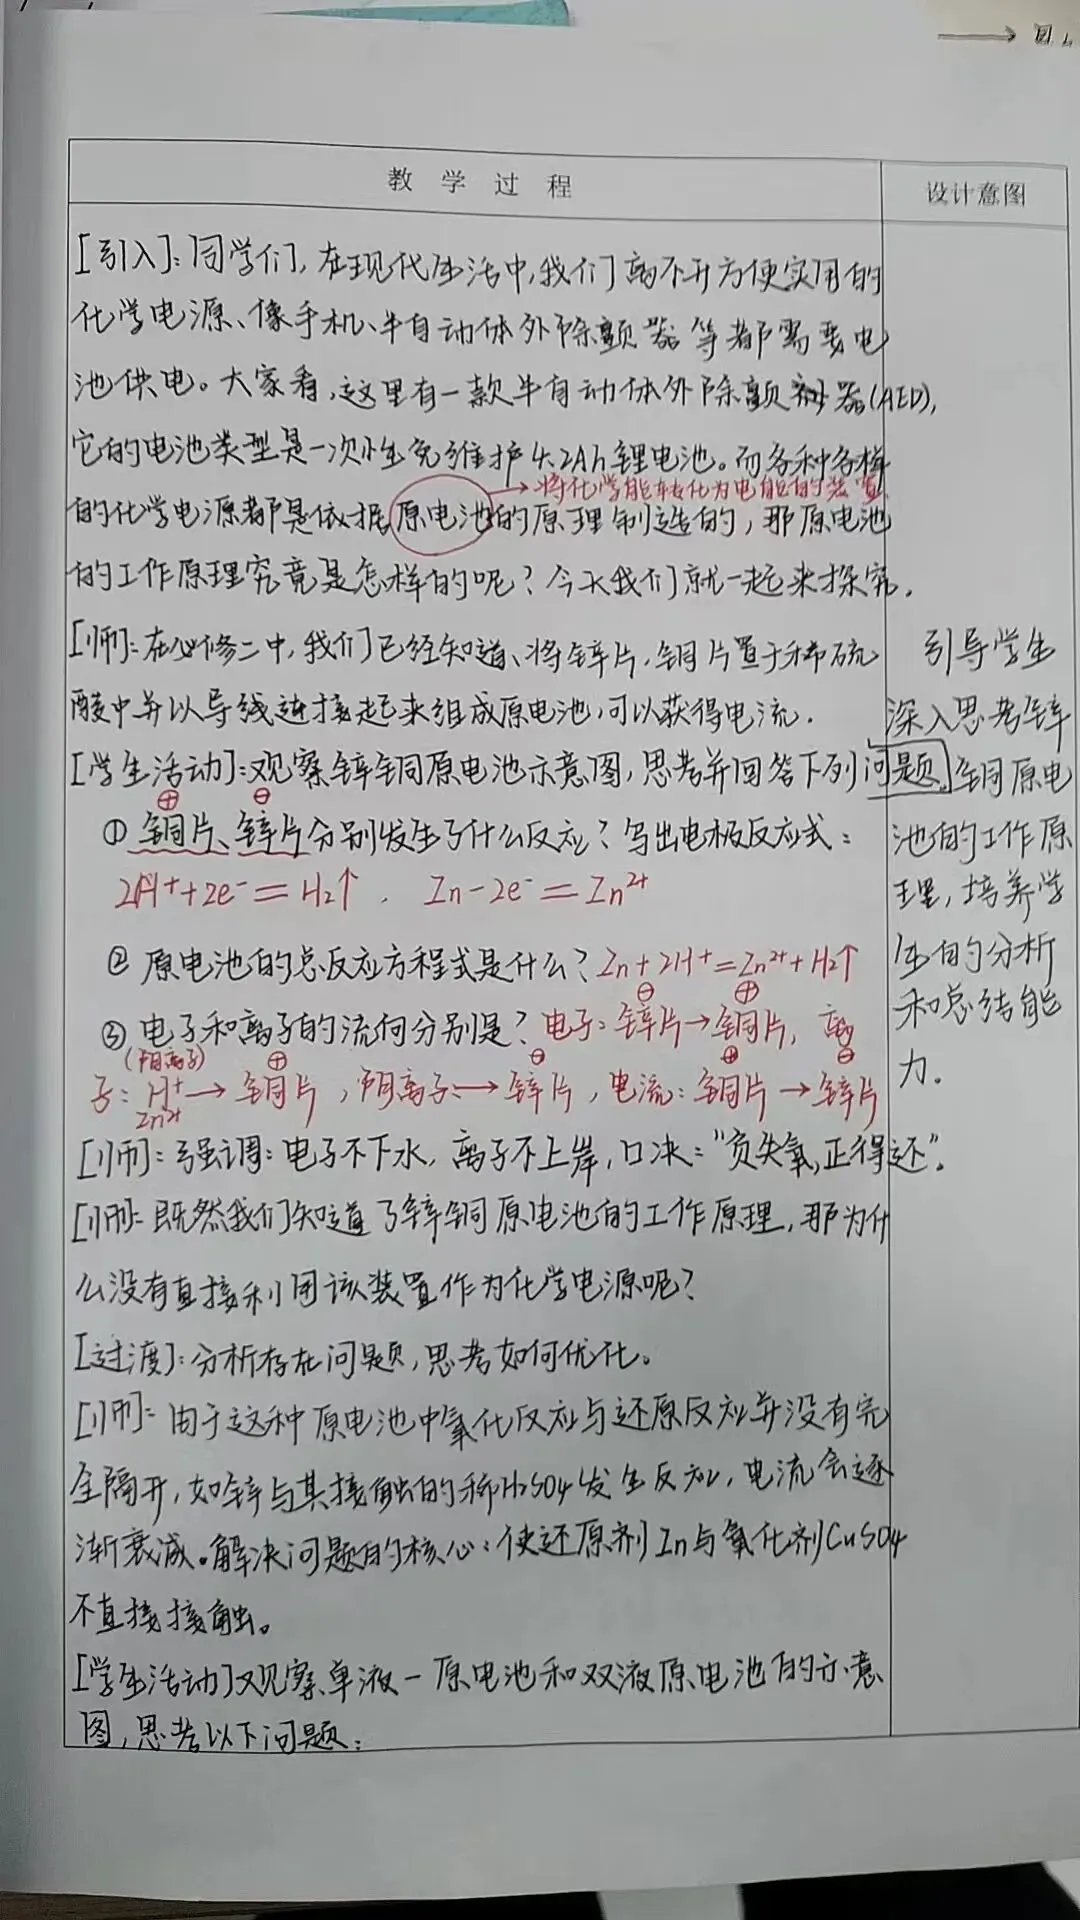 教 学 过 程
设计意图
[引入]:同学们,在现代生活中,我们离不开方便实用的
化学电源、像手机、半自动体外除颤器等都需要电
池供电。大家看,这里有一款半自动体外除颤器(AED),
它的电池类型是一次性免维护4.2Ah锂电池。而各种各样
→将化学能转化为电能的装置
的化学电源都是依据原电池的原理制造的,那原电池
的工作原理究竟是怎样的呢?今天我们就一起来探究.
[师]:在必修二中,我们已经知道、将锌片,铜片置于稀硫
酸中并以导线连接起来组成原电池,可以获得电流.
[学生活动]:观察锌铜原电池示意图,思考并回答下列问题.
⊕ ⊖
①铜片、锌片分别发生了什么反应?写出电极反应式:
2H⁺+2e⁻=H₂↑ . Zn-2e⁻=Zn²⁺
②原电池的总反应方程式是什么?Zn+2H⁺=Zn²⁺+H₂↑
⊖ ⊕
③电子和离子的流向分别是?电子:锌片→铜片,离
(阳离子) ⊕ ⊖ ⊕ ⊖
子:H⁺→铜片,阴离子:→锌片,电流:铜片→锌片
Zn²⁺
[师]:强调:电子不下水,离子不上岸,口决:"负失氧,正得还".
[师]:既然我们知道了锌铜原电池的工作原理,那为什
么没有直接利用该装置作为化学电源呢?
[过渡]:分析存在问题,思考如何优化。
[师]:由于这种原电池中氧化反应与还原反应并没有完
全隔开,如锌与其接触的稀H₂SO₄发生反应,电流会逐
渐衰减。解决问题的核心:使还原剂Zn与氧化剂CuSO₄
不直接接触。
[学生活动]观察单液一原电池和双液原电池的示意
图,思考以下问题:
引导学生
深入思考锌
铜原电
池的工作原
理,培养学
生的分析
和总结能
力.